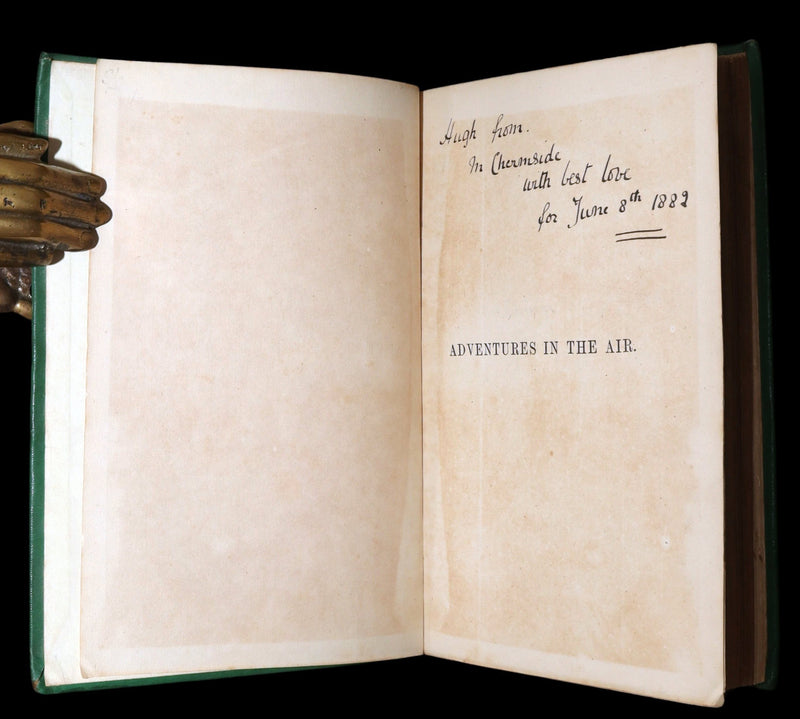 Hugh from.
M Chermside
with best love
for June 8th 1882
ADVENTURES IN THE AIR.